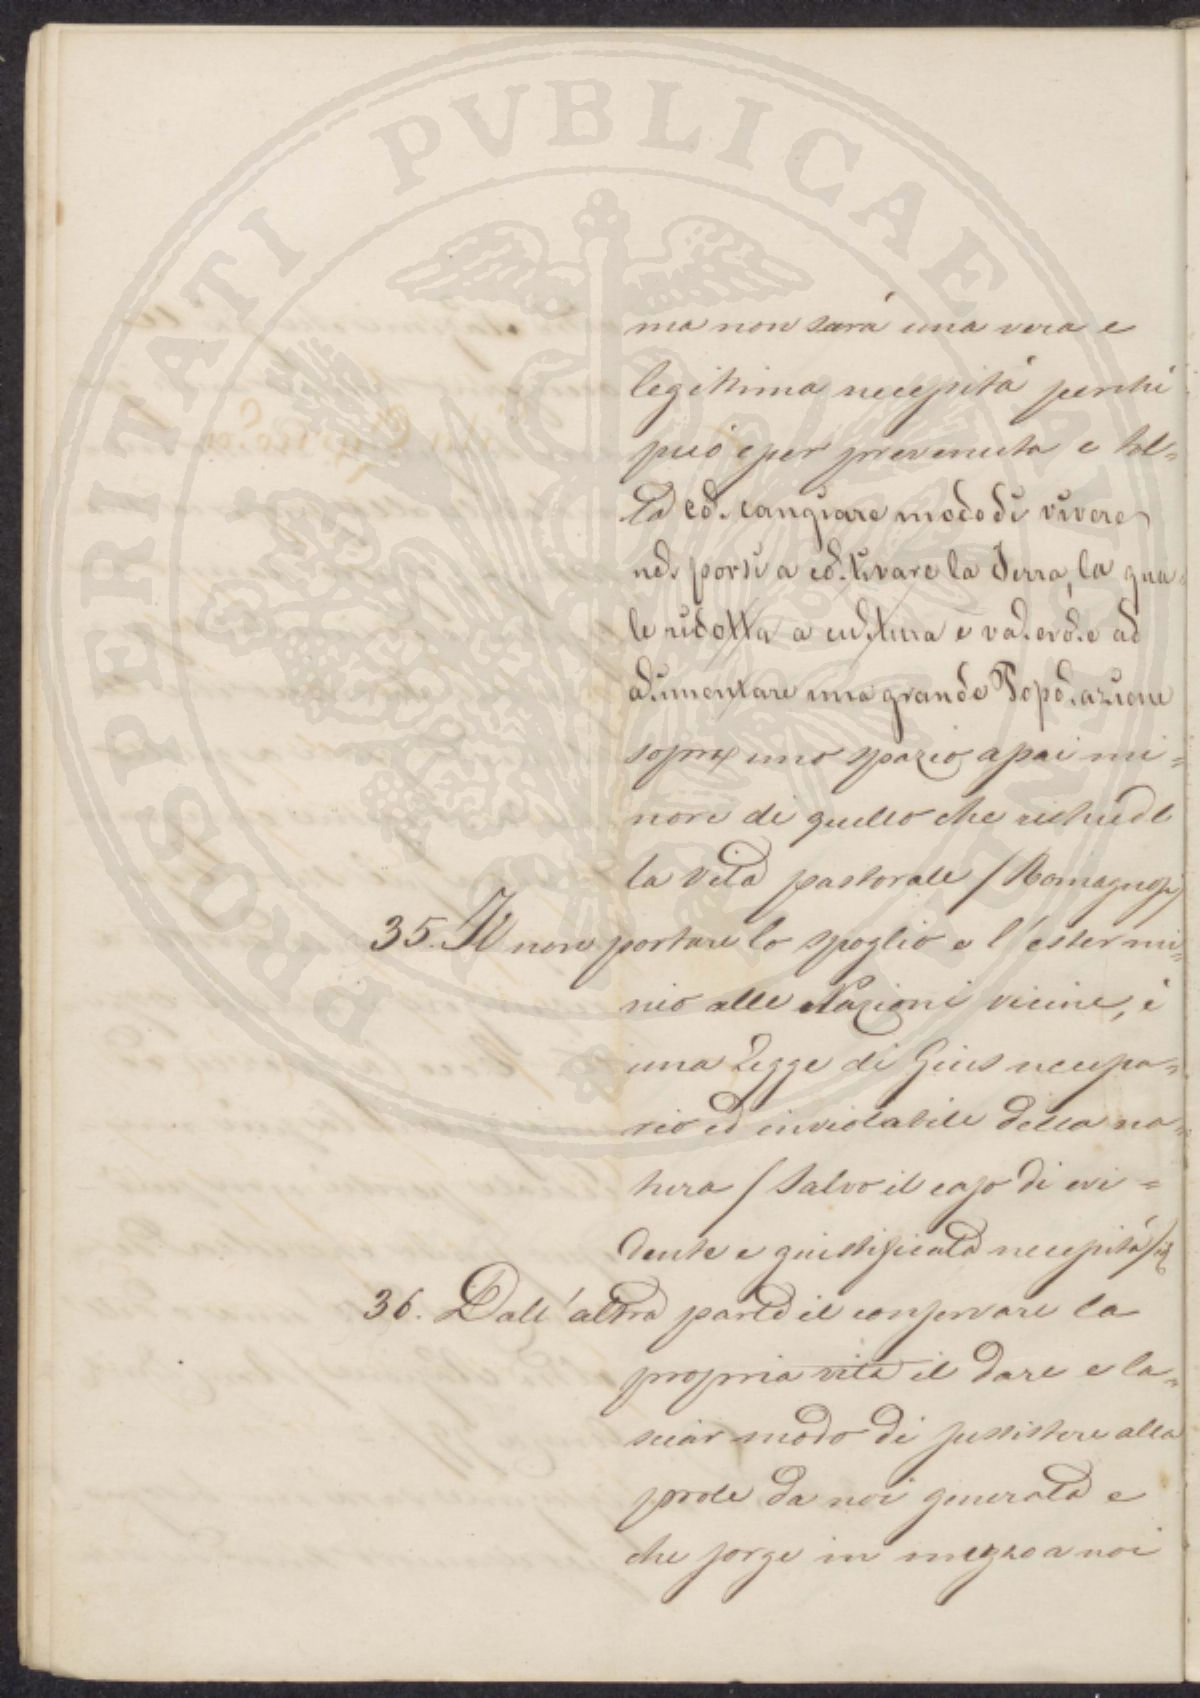 PROSPERITATI PVBLICAE
ma non sará una vera e
legittima necessitá perché
può esser prevenuta e tol=
ta col cangiare modo di vivere
nel porsi a coltivare la Terra, la qua=
le ridotta a cultura e valevole ad
alimentare una grande Popolazione
sopra uno spazio assai mi=
nore di quello che richiede
la vita pastorale / Romagnosi /
35. Il non portare lo spoglio e l'estermi=
nio alle Nazioni vicine, é
una Legge di Gius necessa=
rio ed inviolabile della na=
tura / Salvo il caso di evi=
dente e giustificata necessitá /
36. Dall'altra parte il conservare la
propria vita il dare e la=
sciar modo di sussistere alla
prole da noi generata e
che sorge in mezzo a noi